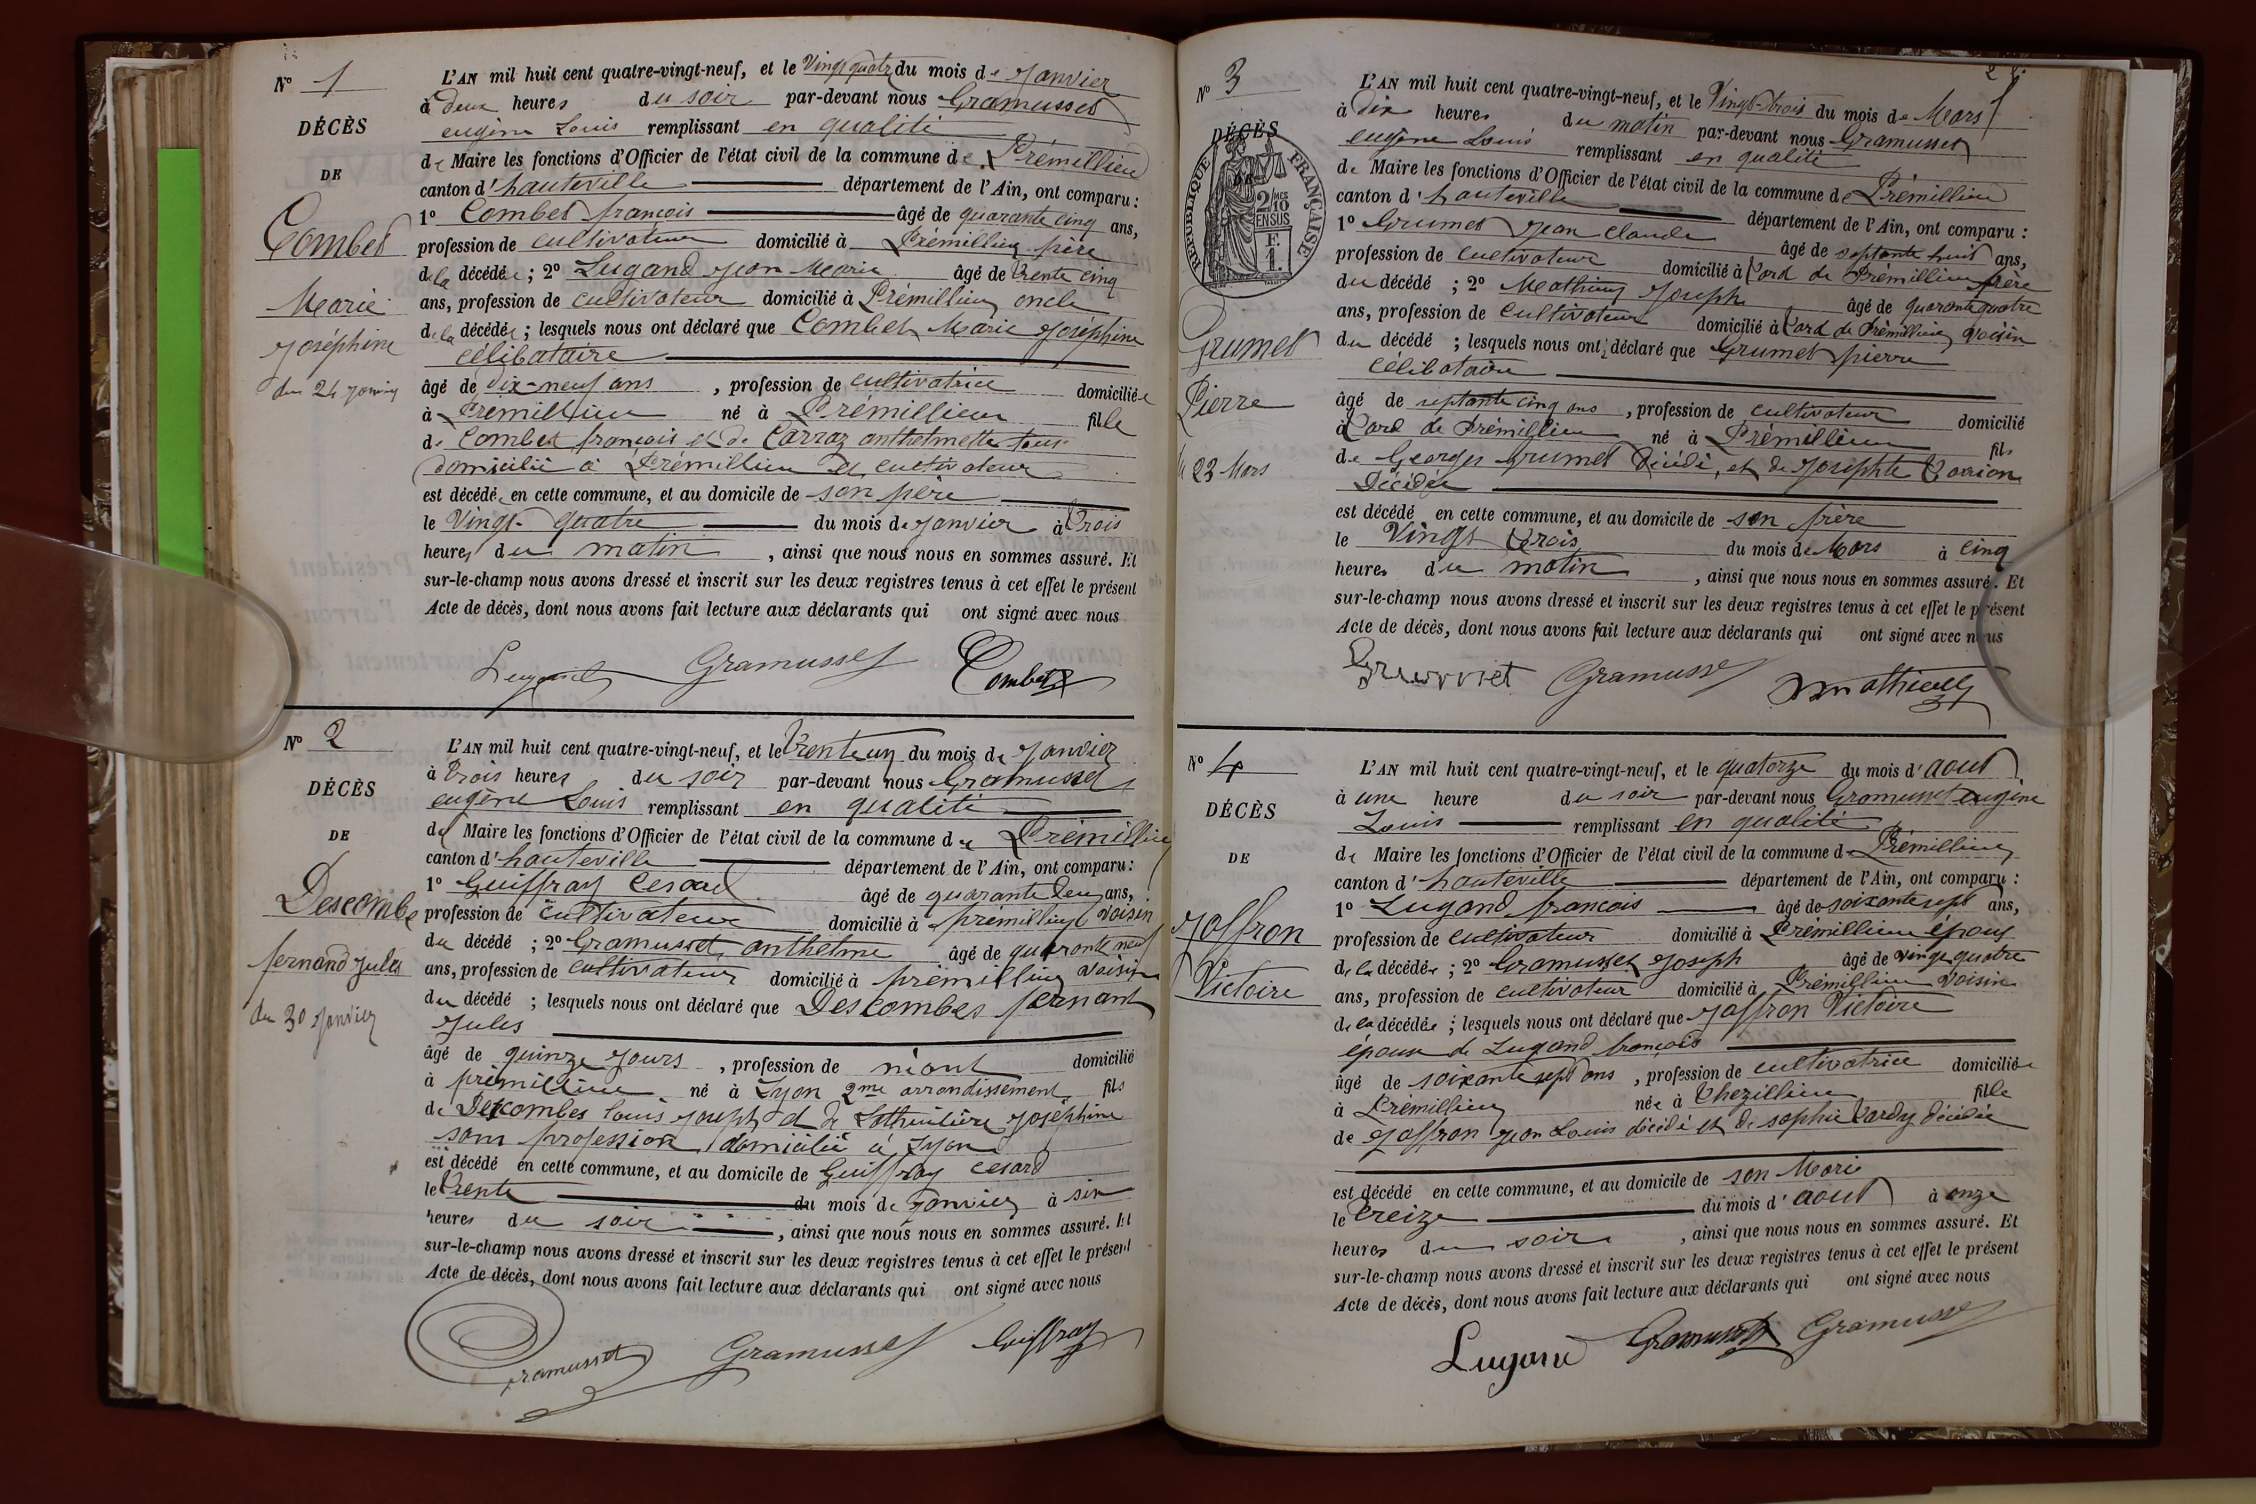 N° 1
DÉCÈS
DE
Combet
Marie
Joséphine
du 24 janvier
L'AN mil huit cent quatre-vingt-neuf, et le Vingt quatre du mois de Janvier
à deux heures du soir par-devant nous Gramusset
eugène Louis remplissant en qualité
de Maire les fonctions d'Officier de l'état civil de la commune de Prémillieu
canton d'hauteville département de l'Ain, ont comparu :
1° Combet françois âgé de quarante cinq ans,
profession de cultivateur domicilié à Prémillieu père
de la décédée ; 2° Lugand Jean Marie âgé de trente cinq
ans, profession de cultivateur domicilié à Prémillieu oncle
de la décédée ; lesquels nous ont déclaré que Combet Marie Joséphine
célibataire
âgé de dix-neuf ans , profession de cultivatrice domiciliée
à Prémillieu né à Prémillieu fille
de Combet françois et de Carraz anthelmette tous
domicilié à Prémillieu et cultivateur
est décédée en cette commune, et au domicile de son père
le Vingt-quatre du mois de Janvier à trois
heures du matin , ainsi que nous nous en sommes assuré. Et
sur-le-champ nous avons dressé et inscrit sur les deux registres tenus à cet effet le présent
Acte de décès, dont nous avons fait lecture aux déclarants qui ont signé avec nous
Lugand Gramusset Combet
N° 2
DÉCÈS
DE
Descombe
fernand Jules
du 30 Janvier
L'AN mil huit cent quatre-vingt-neuf, et le trente un du mois de Janvier
à trois heures du soir par-devant nous Gramusset
eugène Louis remplissant en qualité
de Maire les fonctions d'Officier de l'état civil de la commune de Prémillieu
canton d'hauteville département de l'Ain, ont comparu :
1° Guiffray Cesard âgé de quarante deux ans,
profession de cultivateur domicilié à prémillieu voisin
du décédé ; 2° Gramusset anthelme âgé de quarante neuf
ans, profession de cultivateur domicilié à prémillieu voisin
du décédé ; lesquels nous ont déclaré que Descombes fernant
Jules
âgé de quinze jours , profession de néant domicilié
à prémillieu né à Lyon 2me arrondissement fils
de Descombes Louis Joseph et de Joséphine
sans profession domicilié à Lyon
est décédé en cette commune, et au domicile de Guiffray Cesard
le trente du mois de Janvier à six
heures du soir , ainsi que nous nous en sommes assuré. Et
sur-le-champ nous avons dressé et inscrit sur les deux registres tenus à cet effet le présent
Acte de décès, dont nous avons fait lecture aux déclarants qui ont signé avec nous
Gramusset Gramusset Guiffray
28
N° 3
DÉCÈS
DE
RÉPUBLIQUE FRANÇAISE
2/10 MES
EN SUS
F.
1.
Grumet
Pierre
le 23 Mars
L'AN mil huit cent quatre-vingt-neuf, et le Vingt-trois du mois de Mars
à dix heures du matin par-devant nous Gramusset
eugène Louis remplissant en qualité
de Maire les fonctions d'Officier de l'état civil de la commune de Prémillieu
canton d'hauteville département de l'Ain, ont comparu :
1° Grumet Jean Claude âgé de septante huit ans,
profession de cultivateur domicilié à de Prémillieu frère
du décédé ; 2° Mathieu Joseph âgé de quarante quatre
ans, profession de cultivateur domicilié à de Prémillieu voisin
du décédé ; lesquels nous ont déclaré que Grumet pierre
célibataire
âgé de septante cinq ans , profession de cultivateur domicilié
à de Prémillieu né à Prémillieu fils
de Georges Grumet décédé, et de Josephte
Décédée
est décédé en cette commune, et au domicile de son frère
le Vingt trois du mois de Mars à cinq
heures du matin , ainsi que nous nous en sommes assuré. Et
sur-le-champ nous avons dressé et inscrit sur les deux registres tenus à cet effet le présent
Acte de décès, dont nous avons fait lecture aux déclarants qui ont signé avec nous
Grumet Gramusset Mathieu
N° 4
DÉCÈS
DE
Joffron
Victoire
L'AN mil huit cent quatre-vingt-neuf, et le quatorze du mois d'aout
à une heure du soir par-devant nous Gramusset eugène
Louis remplissant en qualité
de Maire les fonctions d'Officier de l'état civil de la commune de Prémillieu
canton d'hauteville département de l'Ain, ont comparu :
1° Lugand françois âgé de soixante sept ans,
profession de cultivateur domicilié à Prémillieu époux
de la décédée ; 2° Gramusset Joseph âgé de vingt quatre
ans, profession de cultivateur domicilié à Prémillieu voisin
de la décédée ; lesquels nous ont déclaré que Joffron Victoire
épouse de Lugand françois
âgé de soixante sept ans , profession de cultivatrice domiciliée
à Prémillieu née à thezillieu fille
de Joffron Jean Louis décédé et de sophie tardy décédée
est décédé en cette commune, et au domicile de son Marie
le treize du mois d'aout à onze
heures du soir , ainsi que nous nous en sommes assuré. Et
sur-le-champ nous avons dressé et inscrit sur les deux registres tenus à cet effet le présent
Acte de décès, dont nous avons fait lecture aux déclarants qui ont signé avec nous
Lugand Gramusset Gramusset